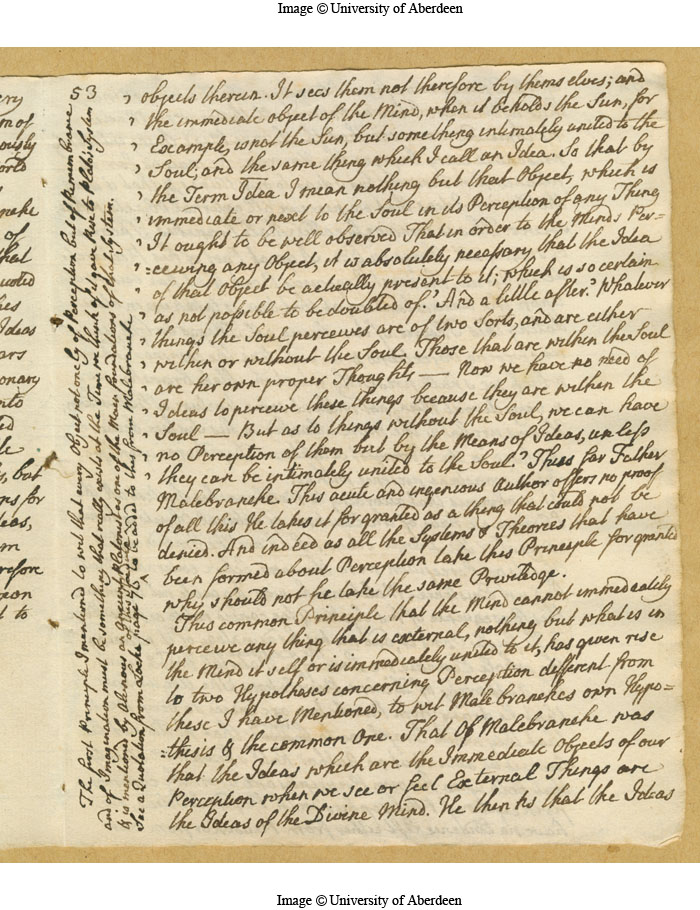 Image © University of Aberdeen
53
objects therein. It sees them not therefore by themselves; and
the immediate object of the Mind, when it beholds the Sun, for
Example, is not the Sun, but something intimately united to the
Soul, and the same thing which I call an Idea. So that by
the Term Idea I mean nothing but that Object, which is
immediate or next to the Soul in its Perception of any Thing
It ought to be well observed That in order to the Minds Per=
=ceiving any Object, it is absolutely necessary that the Idea
of that Object be actually present to it; which is so certain
as not possible to be doubted of." And a little after." Whatever
things the Soul perceives are of two Sorts, and are either
within or without the Soul. Those that are within the Soul
are her own proper Thoughts — Now we have no need of
Ideas to perceive these things because they are within the
Soul — But as to things without the Soul, we can have
no Perception of them but by the Means of Ideas, unless
they can be intimately united to the Soul." Thus far Father
Malebranche. This acute and ingenious Author offers no proof
of all this He takes it for granted as a thing that could not be
denied. And indeed as all the Systems & Theories that have
been formed about Perception take this Principle for granted
why should not he take the same Priviledge.
This common Principle that the Mind cannot immediately
perceive any thing that is external, nothing but what is in
the Mind it self or is immediately united to it, has given rise
to two Hypotheses concerning Perception different from
these I have Mentioned, to wit Malebranches own Hypo=
=thisis & the common One. That Of Malebranche was
that the Ideas which are the Immediate Objects of our
Perception when we see or feel External Things are
the Ideas of the Divine Mind. He thinks that the Ideas
The first Principle I mentioned to wit that every Object not onely of Perception but of Remembrance
and of Imagination must be something that really exists at the Time we think of it gave Rise to Plato's System
& is mentioned by Alcinous an Antient Platonist as one of the Main foundations of that System.
See a Quotation from Locke page 76 to be added to this from Malebranche
Image © University of Aberdeen